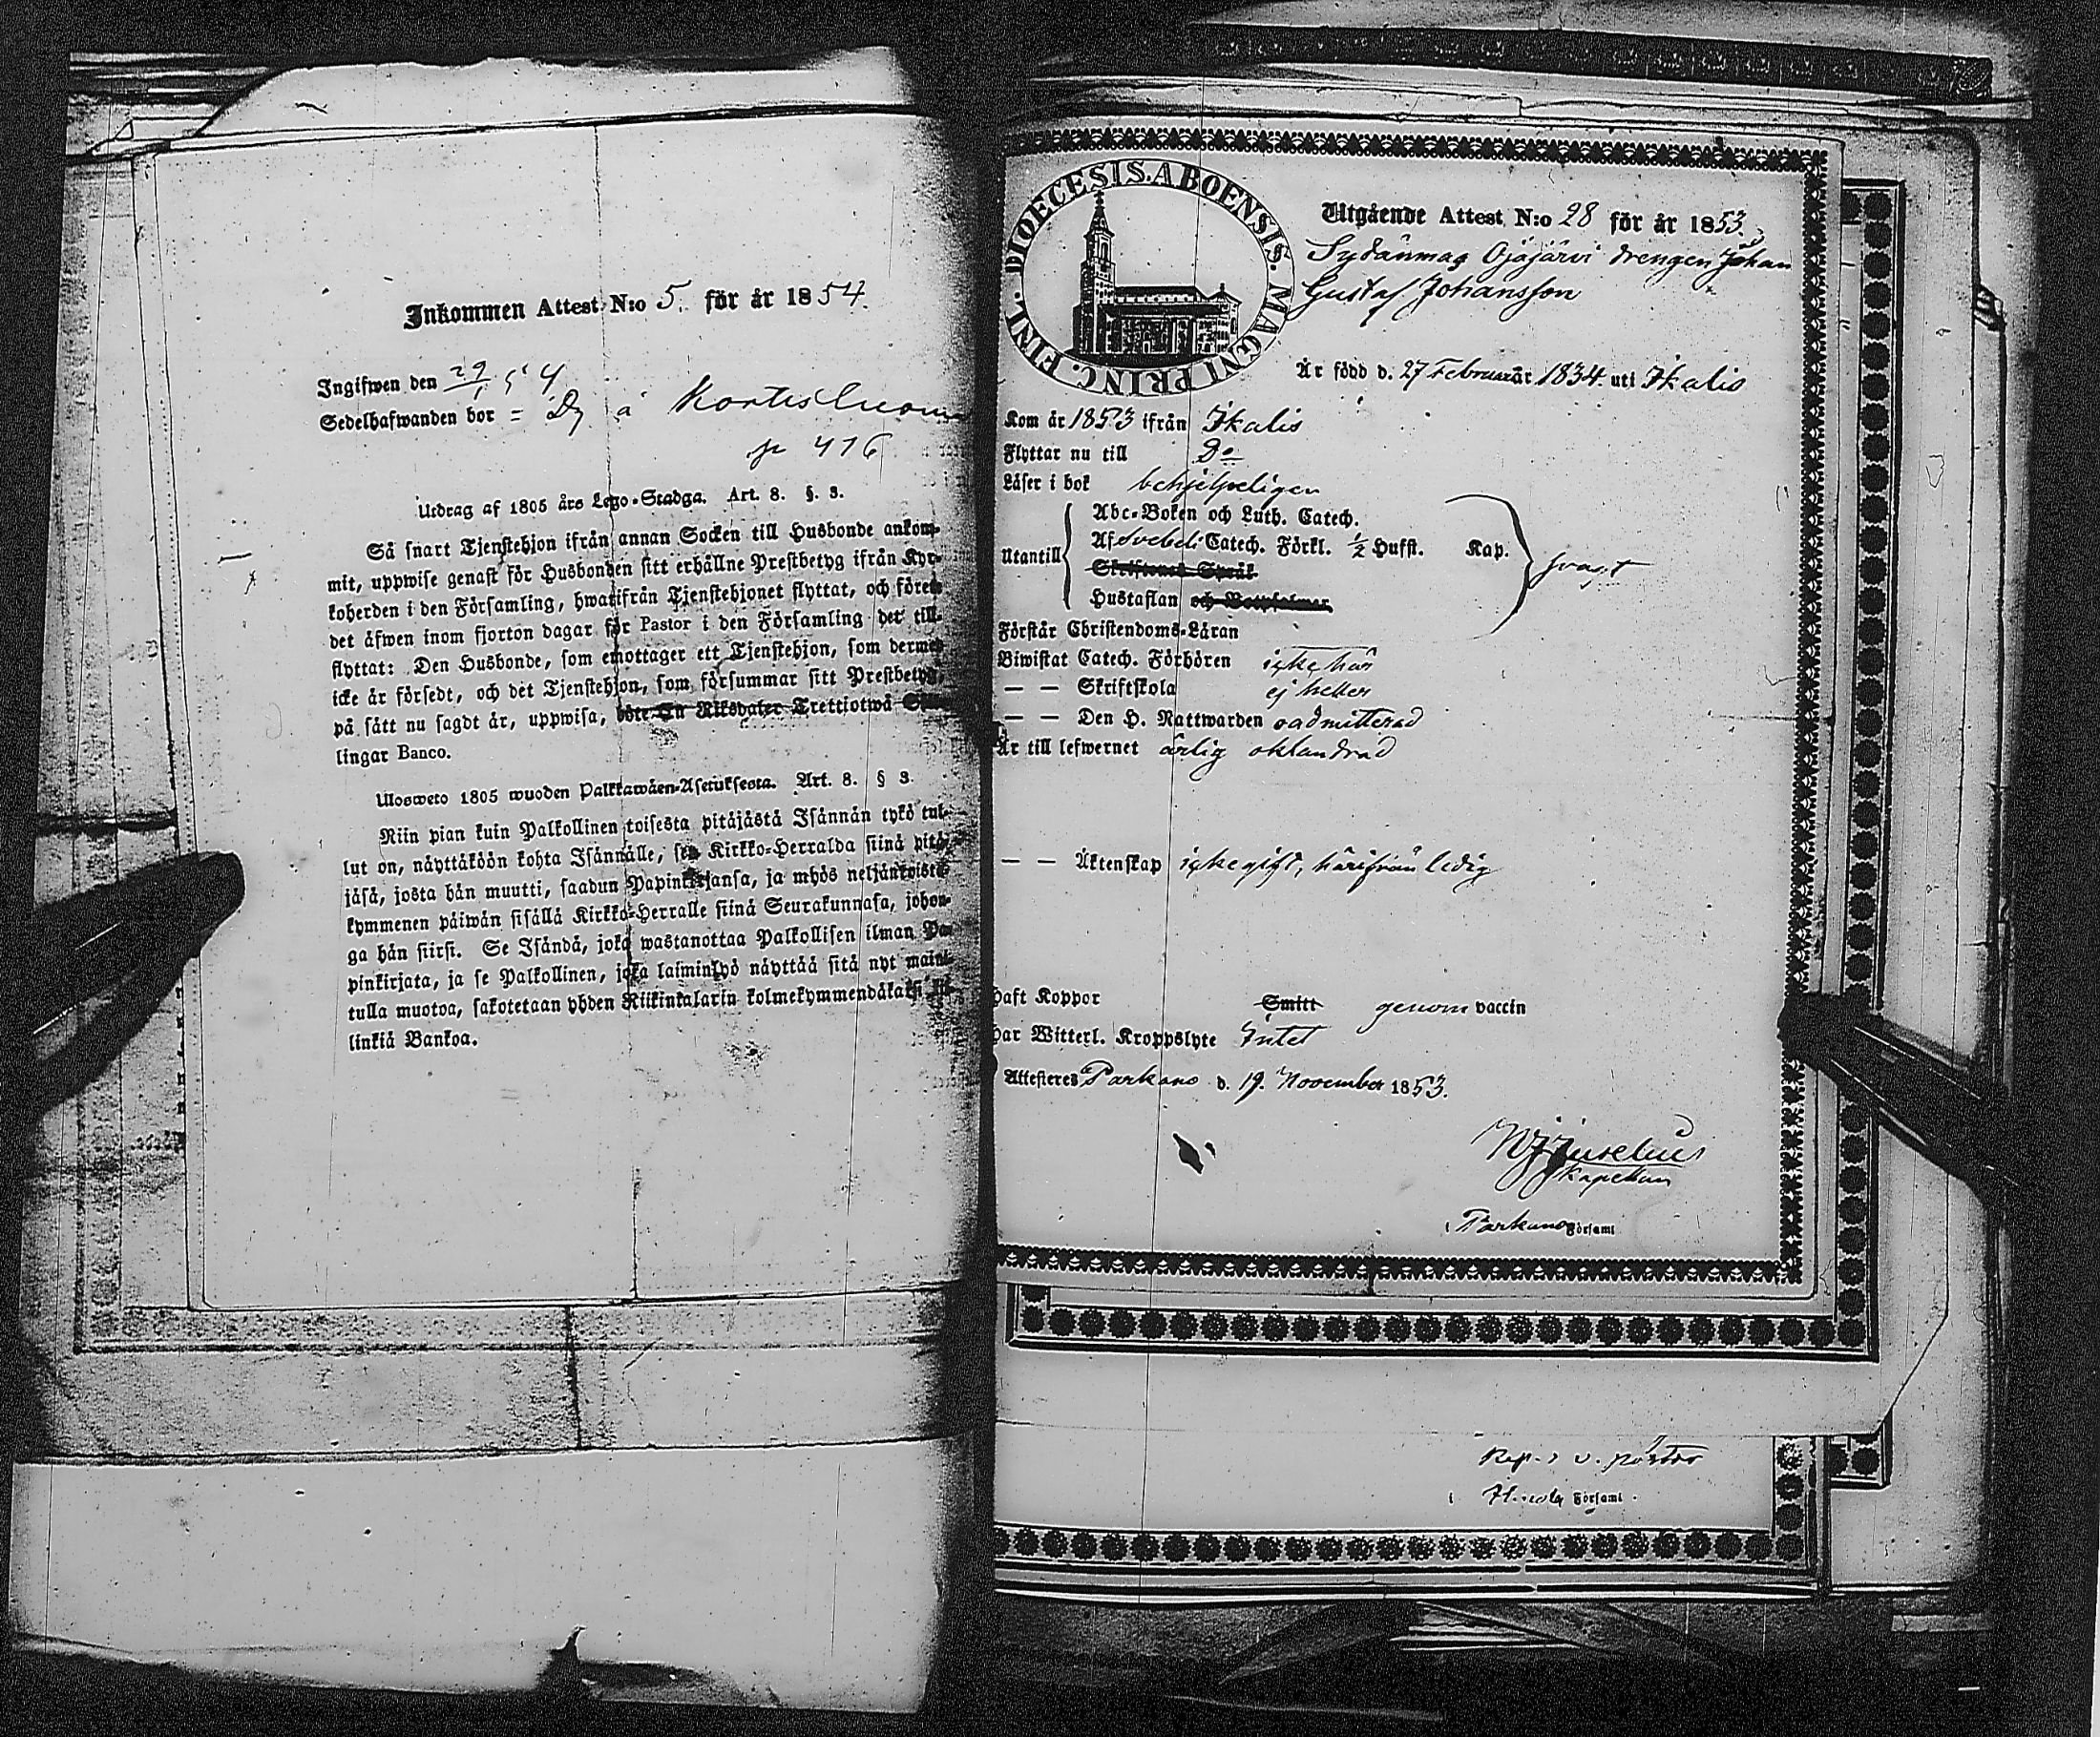 Inkommen Attest N:o 5. för år 1854.
Ingifwen den 29/1 54
Sedelhafwanden bor = Dg å Kortesluoma
p 416
Utdrag af 1805 års Lego-Stadga. Art. 8. §. 3.
Så snart Tjenstehjon ifrån annan Socken till Husbonde ankom-
mit, uppwise genast för Husbonden sitt erhållne Prestbetyg ifrån Kyr-
koherden i den Församling, hwarifrån Tjenstehjonet flyttat, och förete
det äfwen inom fjorton dagar för Pastor i den Församling det till-
flyttat: Den Husbonde, som emottager ett Tjenstehjon, som dermed
icke är försedt, och det Tjenstehjon, som försummar sitt Prestbetyg,
på sätt nu sagdt är, uppwisa, böte En Riksdaler Trettiotwå Skil-
lingar Banco.
Ulosweto 1805 wuoden Palkkawäen-Asetuksesta. Art. 8. § 3.
Niin pian kuin Palkollinen toisesta pitäjästä Isännän tykö tul-
lut on, näyttäköön kohta Isännälle, sen Kirkko-Herralda siinä pitä-
jäsä, josta hän muutti, saadun Papinkirjansa, ja myös neljäntoista-
kymmenen päiwän sisällä Kirkko-Herralle siinä Seurakunnasa, johon-
ga hän siirsi. Se Isändä, joka wastanottaa Palkollisen ilman Pa-
pinkirjata, ja se Palkollinen, joka laiminlyö näyttää sitä nyt maini-
tulla muotoa, sakotetaan yhden Riikintalarin kolmekymmendäkaksi kil-
linkiä Bankoa.
DIOECESIS. ABOENSIS. MAGNI PRINC. FINL.
Utgående Attest N:o 28 för år 1853.
Sydänmaa Ojajärvi drengen Johan
Gustaf Johansson
Är född d. 27 Februari år 1834. uti Ikalis
Kom år 1853 ifrån Ikalis
Flyttar nu till Do
Läser i bok behjelpeligen
Utantill
Abc-Boken och Luth. Catech.
Af Svebeli Catech. Förkl. 1/2 Hufst. Kap.
Skriftenes Språk
Hustaflan och Botpsalmer
svagt
Förstår Christendoms-Läran
Biwistat Catech. Förhören icke här
— — Skriftskola ej heller
— — Den H. Nattwarden oadmitterad
Är till lefwernet ärlig oklandrad
— — Äktenskap icke gift, härifrån ledig
Haft Koppor Smitt genom vaccin
Har Witterl. Kroppslyte Intet
Attesteres Parkano d. 19. November 1853.
Kapellan
i Parkano Förs̈aml
Kap. v. pastor
i Församl.